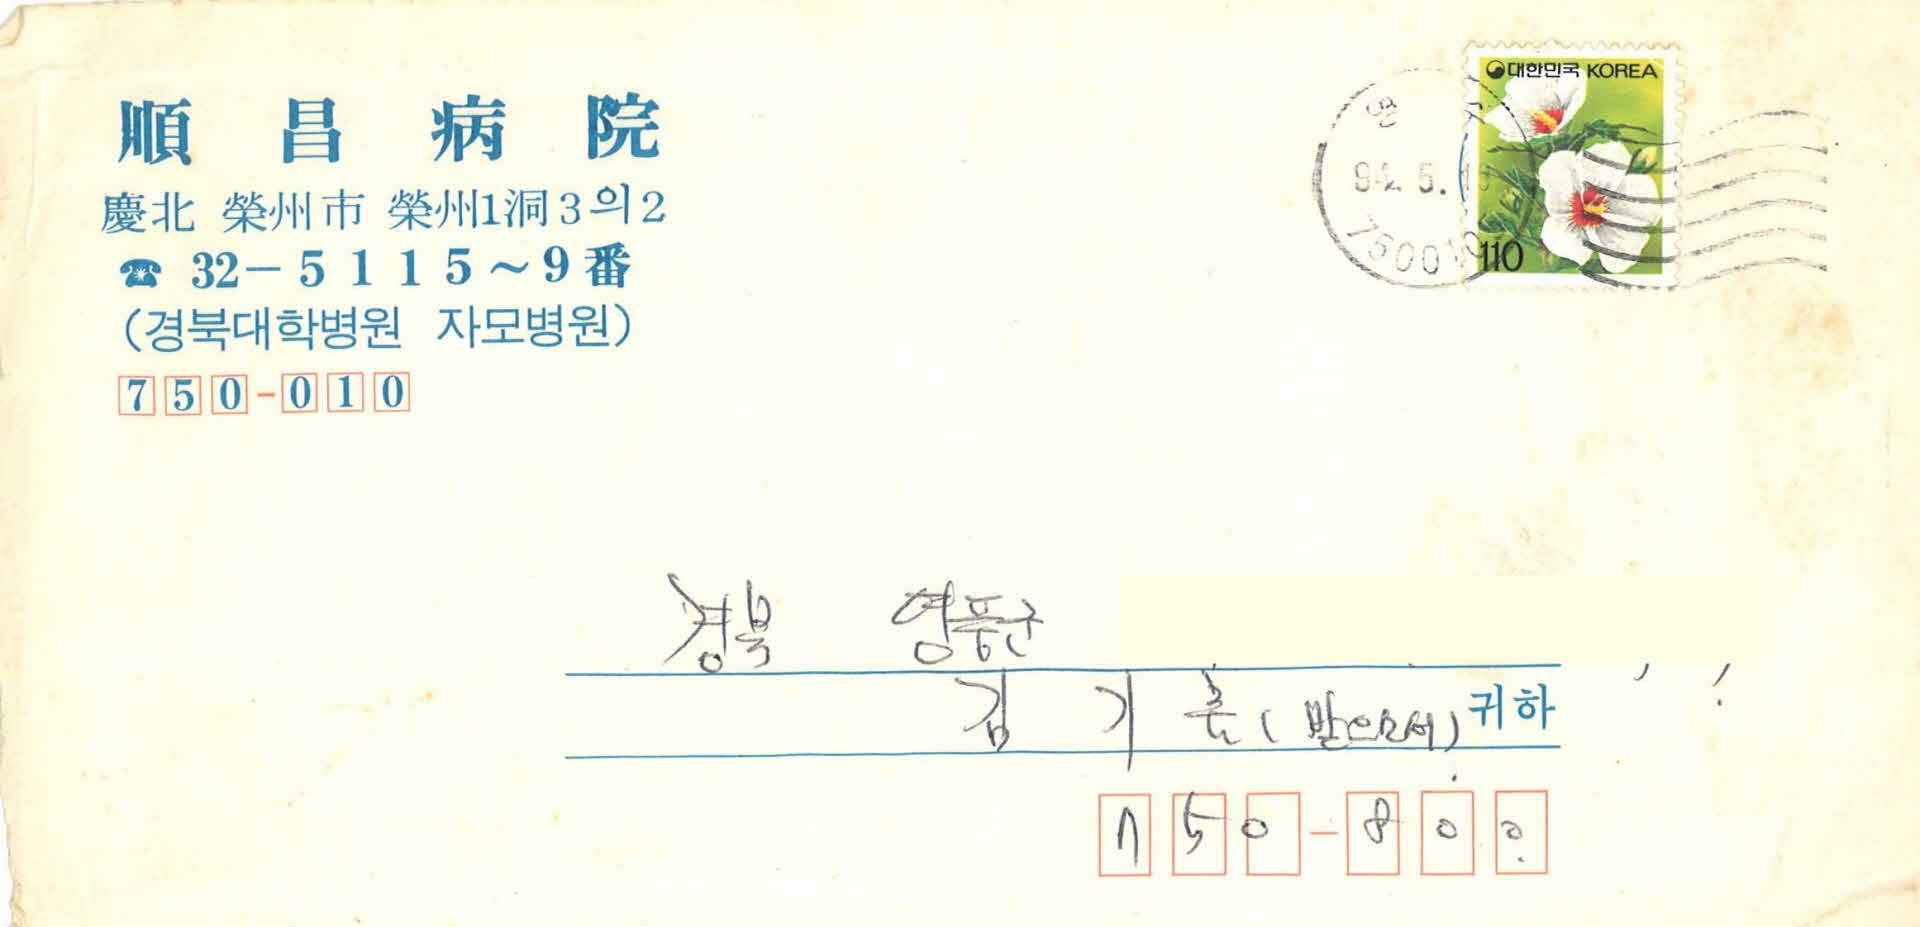 順昌病院
慶北 榮州市 榮州1洞3의2
☎ 32-5115~9番
(경북대학병원 자모병원)
750-010
대한민국 KOREA
110
94. 5.
750010
경북 영풍군
김기춘 (받으모서) 귀하
750-800